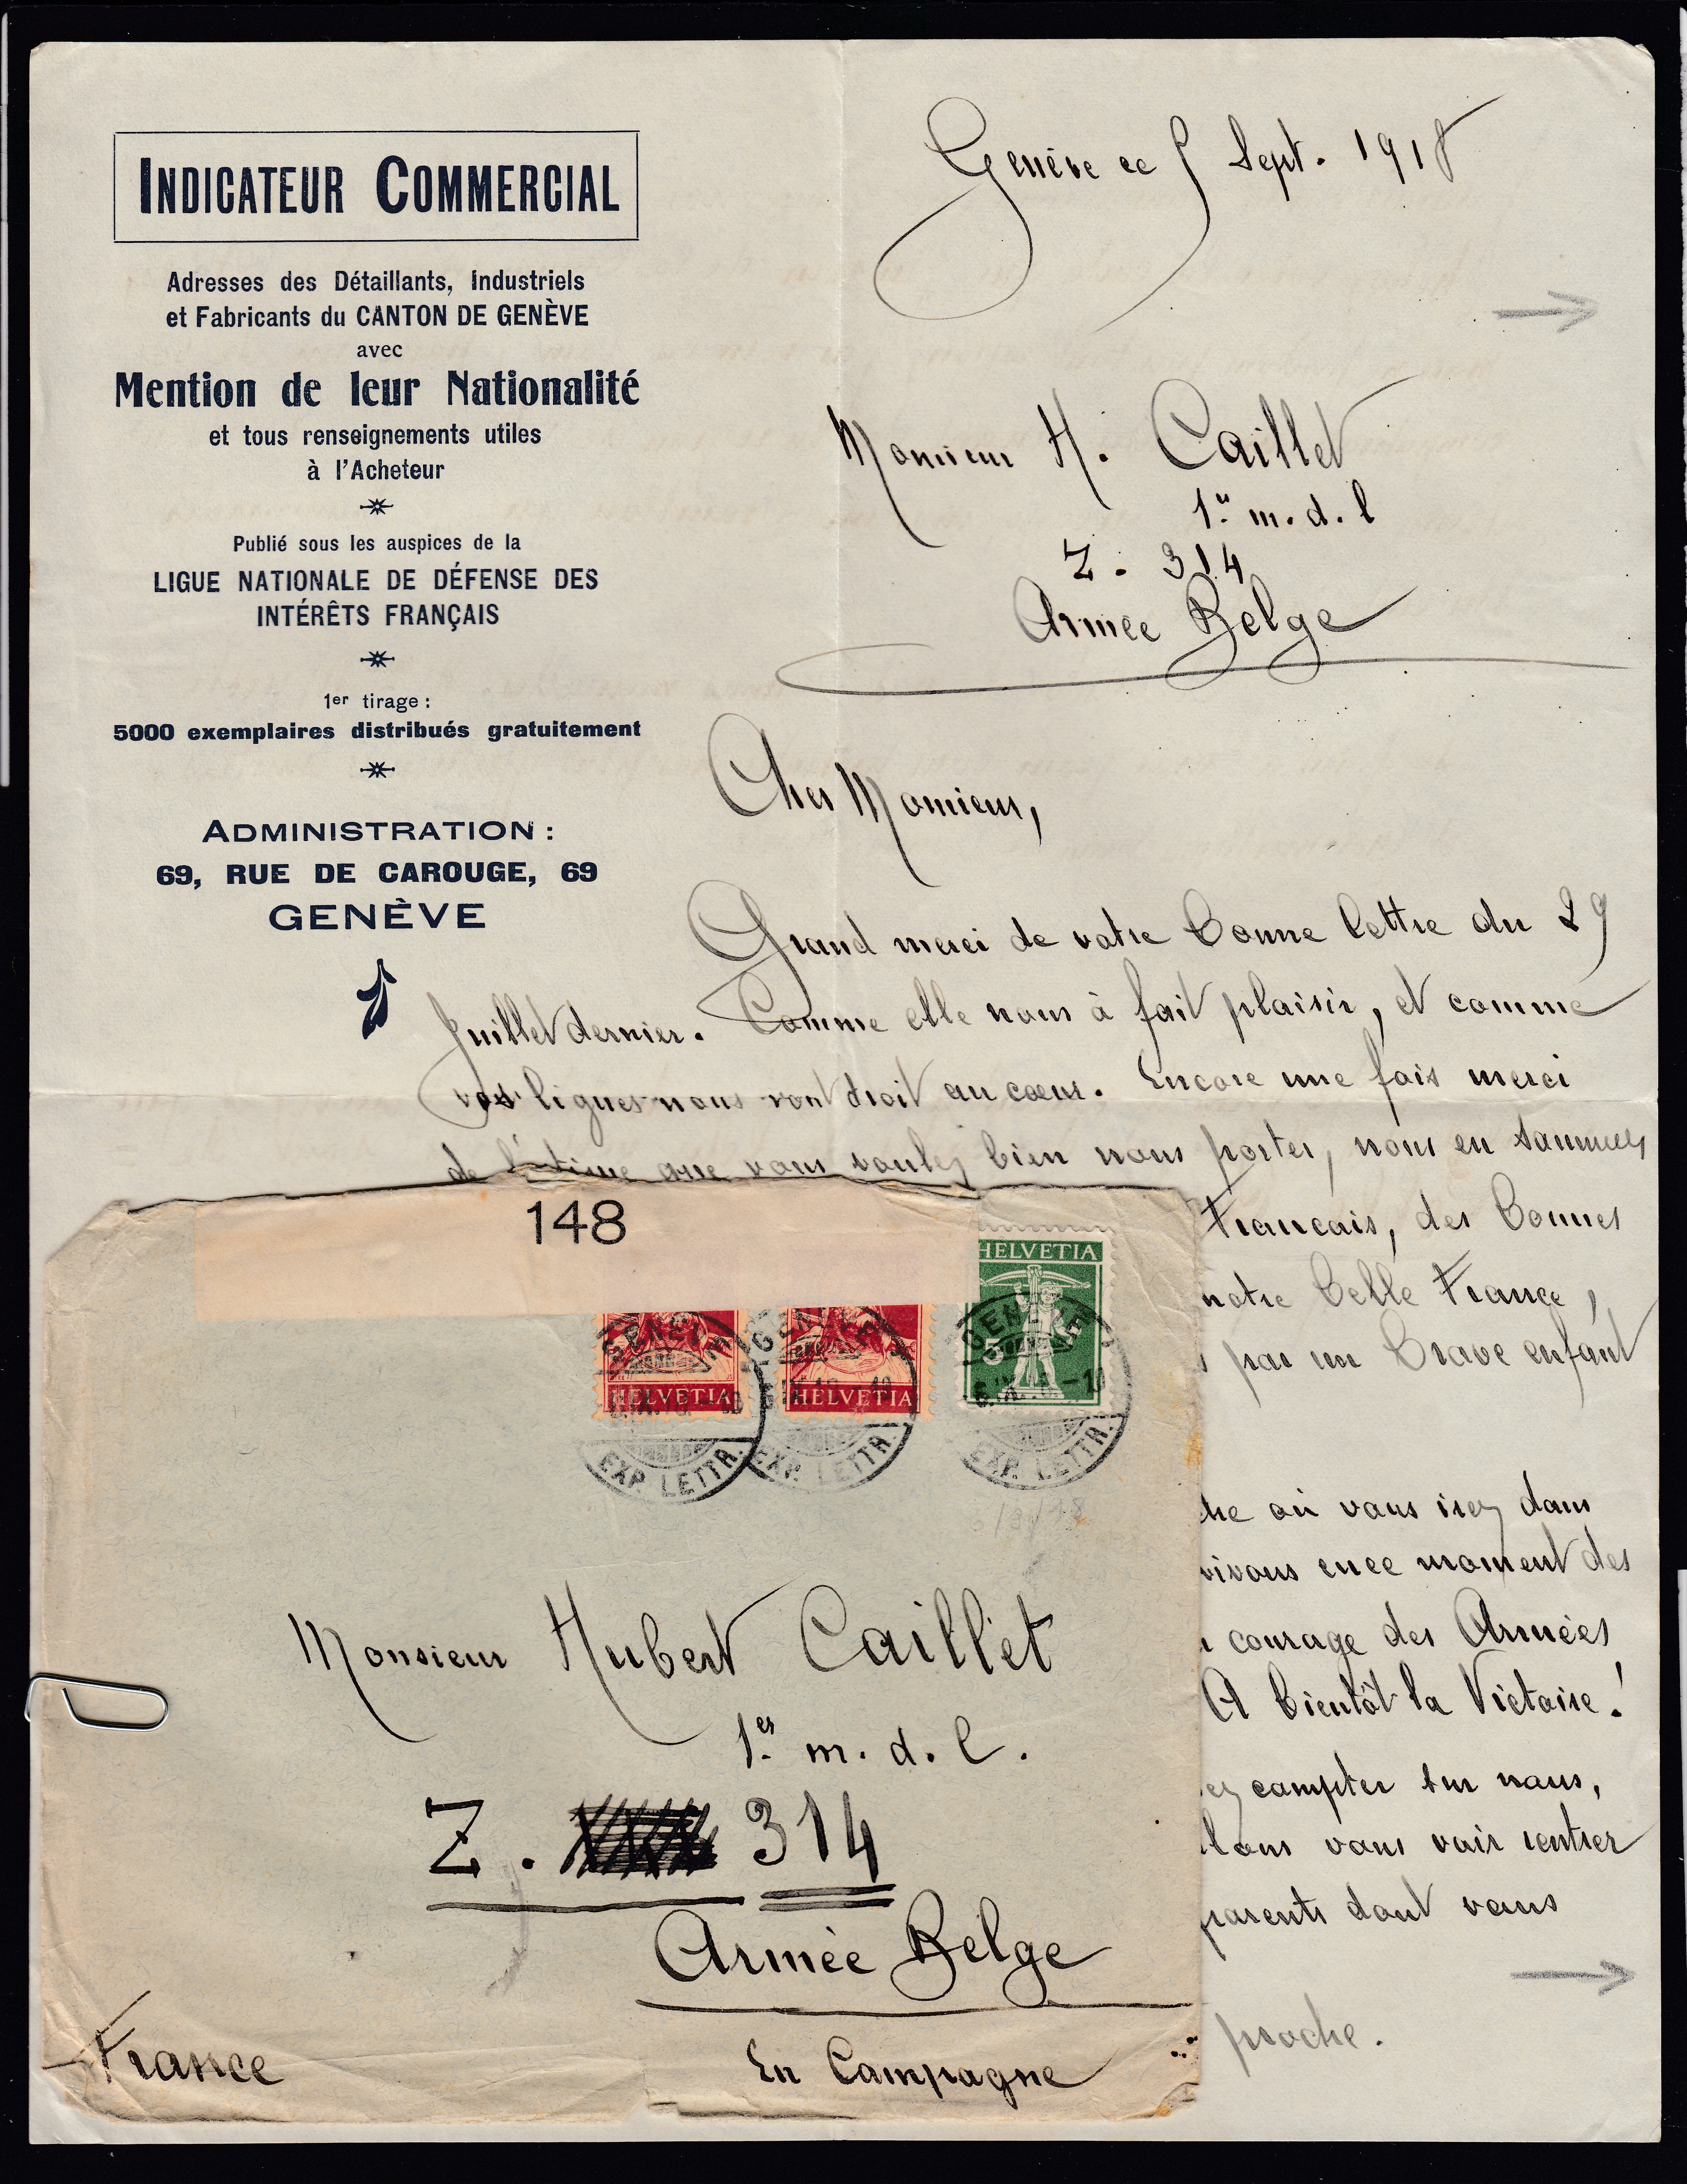 INDICATEUR COMMERCIAL
Adresses des Détaillants, Industriels
et Fabricants du CANTON DE GENÈVE
avec
Mention de leur Nationalité
et tous renseignements utiles
à l'Acheteur
Publié sous les auspices de la
LIGUE NATIONALE DE DÉFENSE DES
INTÉRÊTS FRANÇAIS
1er tirage :
5000 exemplaires distribués gratuitement
ADMINISTRATION :
69, RUE DE CAROUGE, 69
GENÈVE
Genève ce 5 Sept. 1918
Monsieur H. Caillet
1er m. d. l
Z. 314
Armée Belge
Cher Monsieur,
Grand merci de votre bonne lettre du 29
Juillet dernier. Comme elle nous à fait plaisir, et comme
vos lignes nous vont droit au cœur. Encore une fois merci
de l'estime que vous voulez bien nous porter, nous en sommes
Francais, des bonnes
notre belle France,
par un brave enfant
où vous irez dans
vivons en ce moment des
courage des Armées
A bientôt la Victoire!
compter sur nous,
vous voir rentrer
parents dont vous
proche.
148
HELVETIA
HELVETIA
HELVETIA
5
GENÈVE
EXP. LETTR.
GENÈVE
EXP. LETTR.
GENÈVE
EXP. LETTR.
Monsieur Hubert Caillet
1er m. d. l.
Z. 314
Armée Belge
En Campagne
France